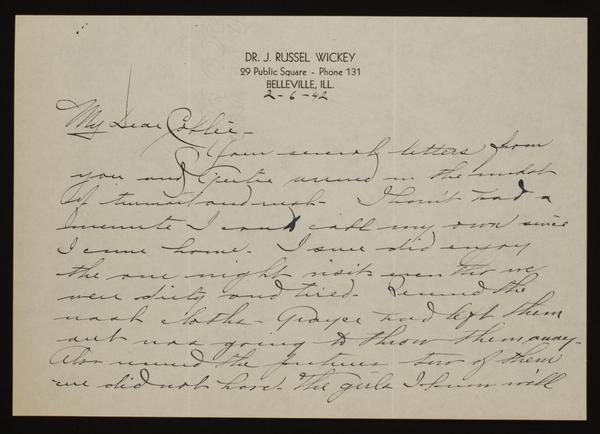 DR. J. RUSSEL WICKEY
29 Public Square - Phone 131
BELLEVILLE, ILL.
2-6-42
My Dear
Your several letters from
you and in the midst
of turmoil and rush. I havn't had a
minute I could call my own since
I came home. I sure did enjoy
the one night visit even tho we
were dirty and tired. Received the
wash cloths - Grayce had left them
out was going to throw them away.
Also received the pictures two of them
we did not have. The girls I know will